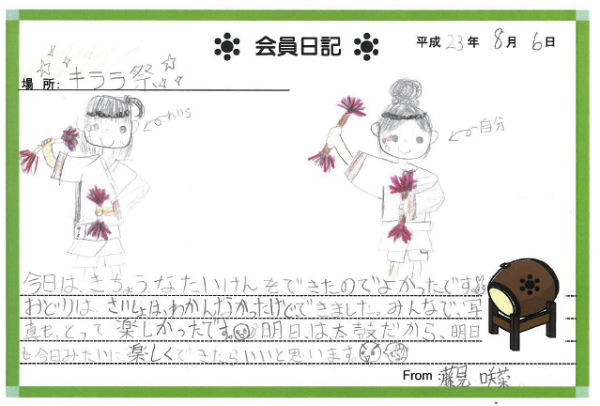 会員日記
平成23年 8月 6日
場所: キララ祭
自分
今日は、きちょうなたいけんをできたのでよかったです。
おどりは、さいしょは、わかんなかったけど、できました。みんなで、写
真も、とって楽しかったです。明日、は、太鼓だから、明日
も今日みたいに楽しくできたらいいと思います。
From: 藤見 咲菜